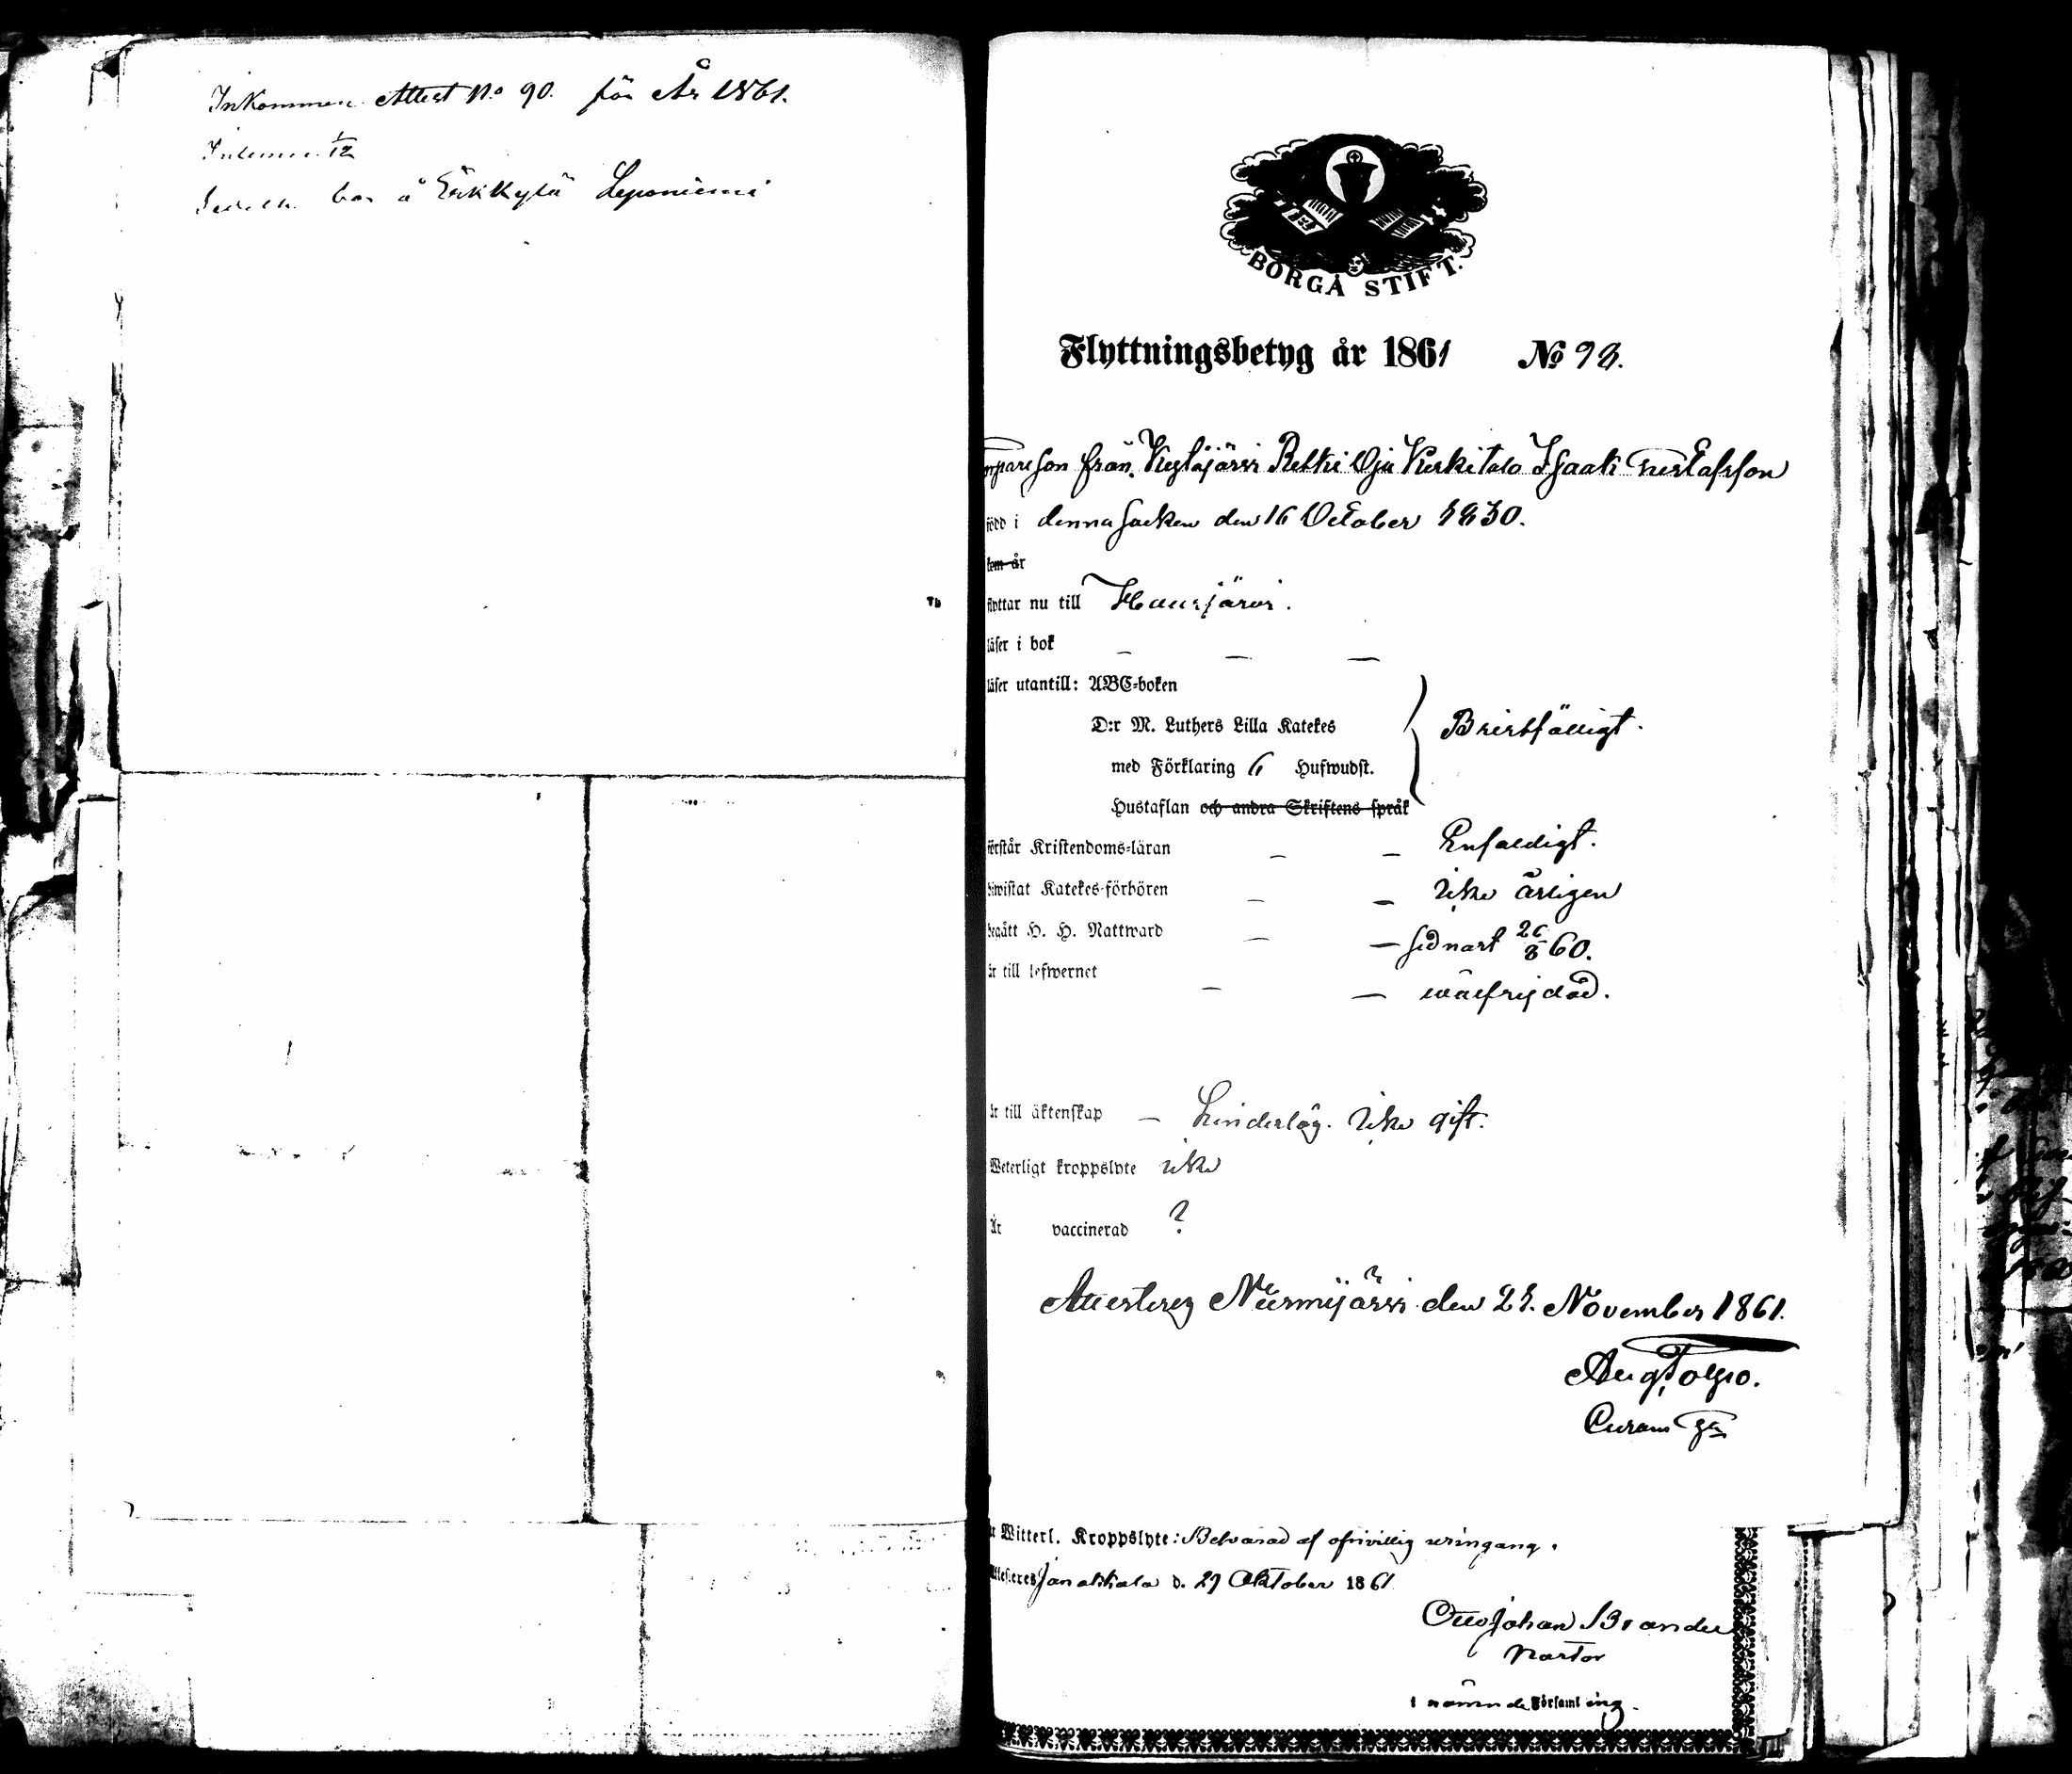 Inkommen Attest No 90. för År 1861.
1/12
bor å Erkkylä Leponiemi
BORGÅ STIFT.
Flyttningsbetyg år 1861 No 93.
son från Kytäjärvi Retki Oja Keskitalo Isaak Gustafsson
född i denna Socken den 16 October 1830.
flyttar nu till Hausjärvi.
läser i bok — — —
läser utantill: ABC-boken
D:r M. Luthers Lilla Katekes Bristfälligt.
med Förklaring 6 Hufwudst.
Hustaflan och andra Skriftens språk
förstår Kristendoms-läran — — Enfaldigt.
biwistat Katekes-förhören — — icke årligen
begått H. H. Nattward — — sednast 26/8 60.
är till lefwernet — — wälfrejdad.
är till äktenskap — hinderlös. icke gift.
Weterligt kroppslyte icke
Är vaccinerad ?
Attesterar Nurmijärvi den 28. November 1861.
Aug
Witterl. Kroppslyte: Beswärad af ofrivillig uringang.
Attesteres Janakkala d. 29 Oktober 1861
Otto Johan Brander
Pastor
i nämnde Församling.